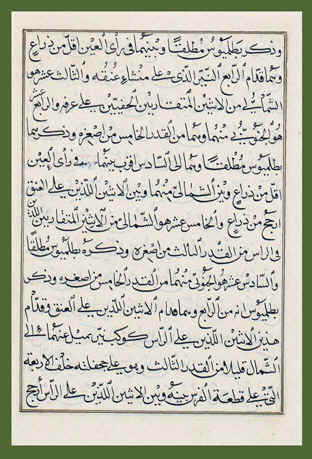 وذكر بطلميوس مطلقا وبينهما في رأى العين اقل من ذراع
وهما قدام الرابع النير الذى على منشاء عنقه والثالث عشر هو
الشمالى من الاثنين المتقاربين الخفيين على عرفه والرابع عشر
هو الجنوبى منهما وهما من القدر الخامس من اصغره وذكرهما
بطلميوس مطلقا وهما الى السادس اقرب بينهما فى رأى العين
اقل من ذراع وبين الشمالى منهما وبين الاثنين اللذين على العنق
ارجح من ذراع والخامس عشر هو الشمالى من الاثنين المتقاربين اللذين
فى الراس من القدر الثالث من اصغره وذكره بطلميوس مطلقا
والسادس عشر هو الجنوبى منهما من القدر الخامس من اصغره وذكر
بطلميوس انه من الرابع وهما قدام الاثنين اللذين على العنق وقدام
هذين الاثنين اللذين على الراس كوكب نير يميل عنهما الى
الشمال قليلا من القدر الثالث وهو على جحفلته خلف الاربعة
التى على قطعة الفرس بينه وبين الاثنين اللذين على الراس ارجح